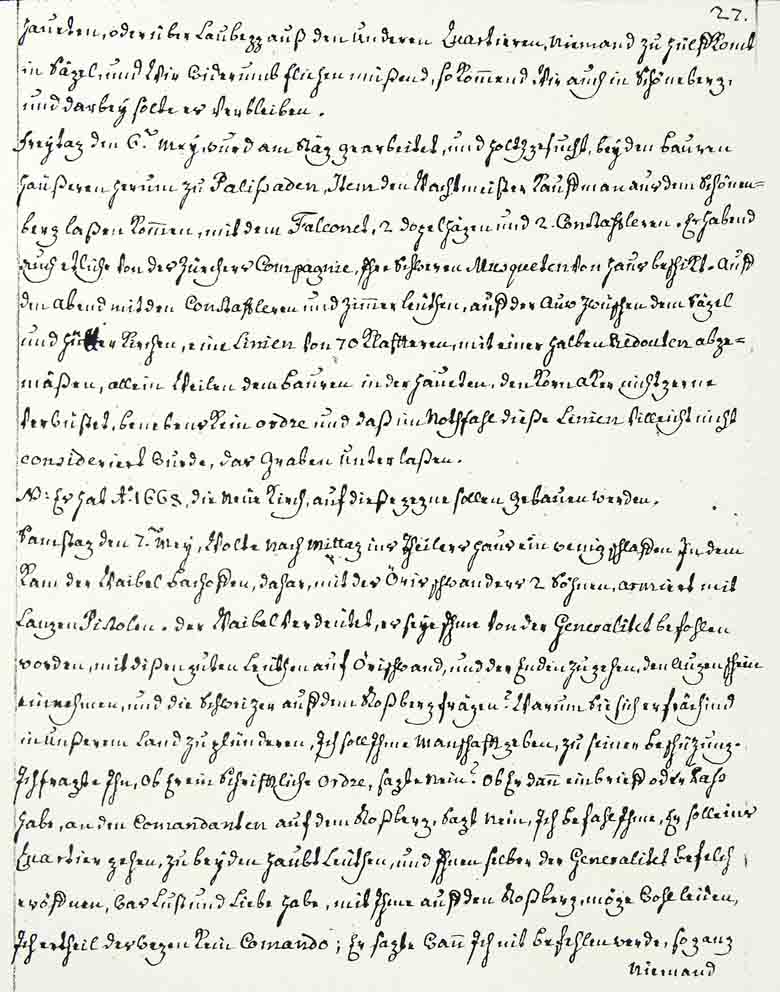 27.
haueten, oder über Laubegg auß den anderen Quartieren, Niemand zu hülff komt
in Sägel, und Wir widerumb fliehen müßend, so kommend Wir auch in Schöneberg,
und darbey solte es Verbleiben.
Freytag den 6.ten Mey, wurd am Stäg gearbeitet, und holtz gesucht, bey den bauren
häüßeren herum zu Palißaden, Item den Wachtmeister Kauffman aus dem Schönen=
berg laßen kommen, mit dem Falconet, 2 dopelhägen und 2. Constafleren. Er habend
auch etliche Von der Zürcher Compagnie, Ihre Schweren Musqueten von haus beschikt. Auff
den abend mit den Constafleren und Zimmerleüthen, auf der Auw zwüschen dem Sägel
und Kirchen, eine Linien Von 70 Klaffteren, mit einer halben Redouten abge=
mäßen, allein Weilen dem bauren in der haueten, den Korn aker nicht gerne
Verwüßet, benebens Kein ordre und daß im Nothfahl dieße Linien Villeicht nicht
consideriert wurde, das Graben unterlaßen.
N: Es hat Ao. 1668, die Neüe Kirch, auf dieße gegne sollen gebauen werden.
Samstag den 7.ten Mey, Wolte nach Mittag ins Theilers haus ein wenig schlaffen In dem
Kam der Waibel bachoffen, dahar, mit des Örischwanders 2 Söhnen, armiert mit
Langen Pistolen. der Waibel Verdeütet, es seye Ihme Von der Generalitet befohlen
worden, mit dißen guten Leüthen auf Örischwand, und der Enden zu gehen, den Augenschein
einnehmen, und die Schweizer auf dem Roßberg fragen? Warum Sie sich erfrächind
in unßerem Land zu plünderen, Ich soll Ihme Manschafft geben, zu seiner beschüzung.
Ich fragte Ihn, Ob Er ein Schrifftliche Ordre, sagte Nein? Ob Er dann ein brieff oder Pass
habe, an den Comandanten auf dem Roßberg, Sagt Nein, Ich befahl Ihme, Er solle ins
Quartier gehen, zu beyden haubt Leüthen, und Ihnen selber der Generalitet befelch
eröffnen, Was Lust und Liebe habe, mit Ihme auff den Roßberg, möge Wohl leiden,
Ich ertheil deswegen Kein Comando; Er sagte Wann Ich nit befehlen werde, so gang
Niemand